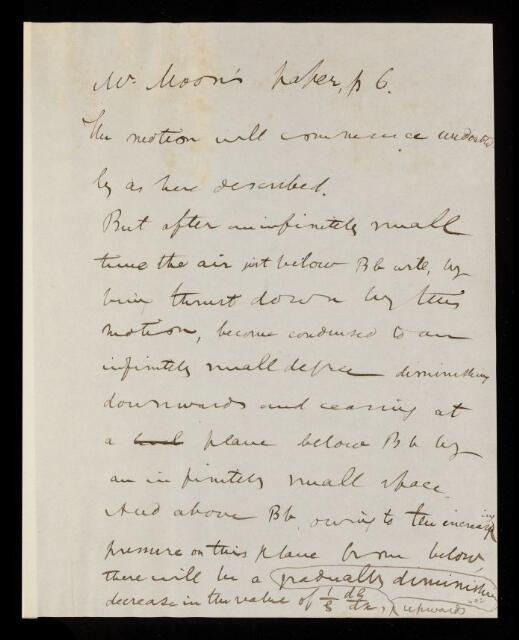 Mr Moon's paper, p 6.
The motion will commence undoubted-
ly as here described.
But after an infinitely small
time the air just below Bb will, by
being thrust down by this
motion, become condensed to an
infinitely small degree diminishing
downwards and ceasing at
a plane below Bb by
an infinitely small space.
And above Bb, owing to the increasing
pressure on this plane from below,
there will be a gradually diminishing
decrease in the value of 1/ dz/dx, upwards